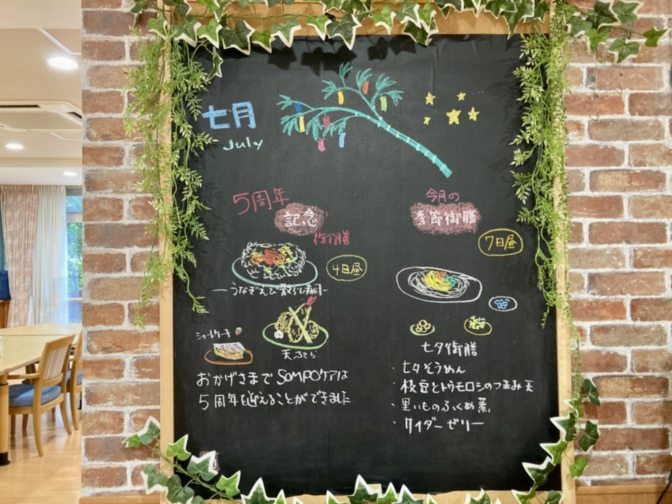 七月
July
5周年
記念
御膳
4日昼
うなぎえび散らし寿司
ショートケーキ
天ぷら
おかげさまで SOMPOケアは
5周年を迎えることができました
今月の
季節御膳
7日昼
七夕御膳
・七夕そうめん
・枝豆とトウモロコシのつまみ天
・里いものふくめ煮
・サイダーゼリー